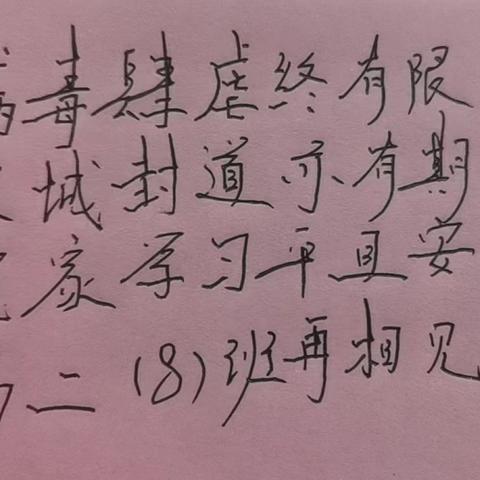 毒肆虐终有限
城封道亦有期
家学习平且安
二(8)班再相见